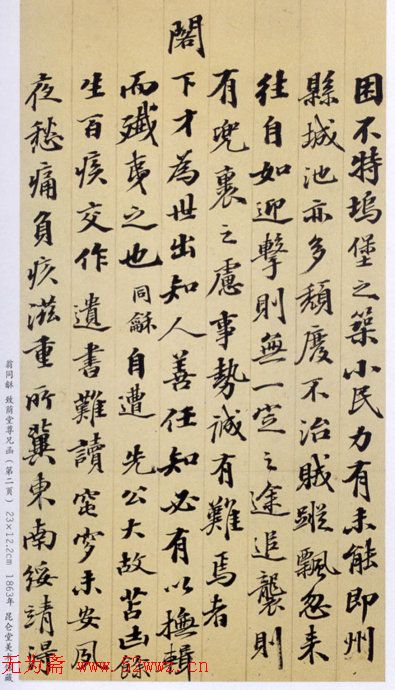 困不特塢堡之築小民力有未能即州
縣城池亦多頹廢不治賊蹤飄忽来
往自如迎擊則無一定之途追襲則
有兜裹之慮事勢誠有難焉者
閣下才為世出知人善任知必有以撫輯
而殲夷之也同龢自遭 先公大故苫凷餘
生百疾交作遺書難讀窀穸未安夙
夜愁痛負疚滋重所冀東南綏靖得
翁同龢 致荫堂尊兄函（第二页） 23×12.2cm 1863年 昆仑堂美
藏
无为斋 www.52wwz.cn